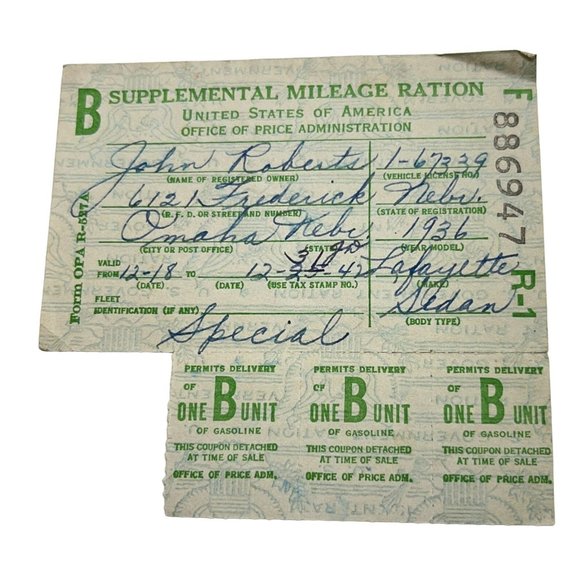 B SUPPLEMENTAL MILEAGE RATION
UNITED STATES OF AMERICA
OFFICE OF PRICE ADMINISTRATION
F 886947 R-1
Form OPA R-527A
John Roberts 1-67239
(NAME OF REGISTERED OWNER) (VEHICLE LICENSE NO.)
6121 Frederick Nebr.
(R. F. D. OR STREET AND NUMBER) (STATE OF REGISTRATION)
Omaha Nebr 1936
(CITY OR POST OFFICE) (STATE) (YEAR MODEL)
VALID
FROM 12-18 TO 12-31-42 Lafayette
(DATE) (DATE) (USE TAX STAMP NO.) (MAKE)
FLEET
IDENTIFICATION (IF ANY) Sedan
(BODY TYPE)
Special
PERMITS DELIVERY PERMITS DELIVERY PERMITS DELIVERY
OF OF OF
ONE B UNIT ONE B UNIT ONE B UNIT
OF GASOLINE OF GASOLINE OF GASOLINE
THIS COUPON DETACHED THIS COUPON DETACHED THIS COUPON DETACHED
AT TIME OF SALE AT TIME OF SALE AT TIME OF SALE
OFFICE OF PRICE ADM. OFFICE OF PRICE ADM. OFFICE OF PRICE ADM.